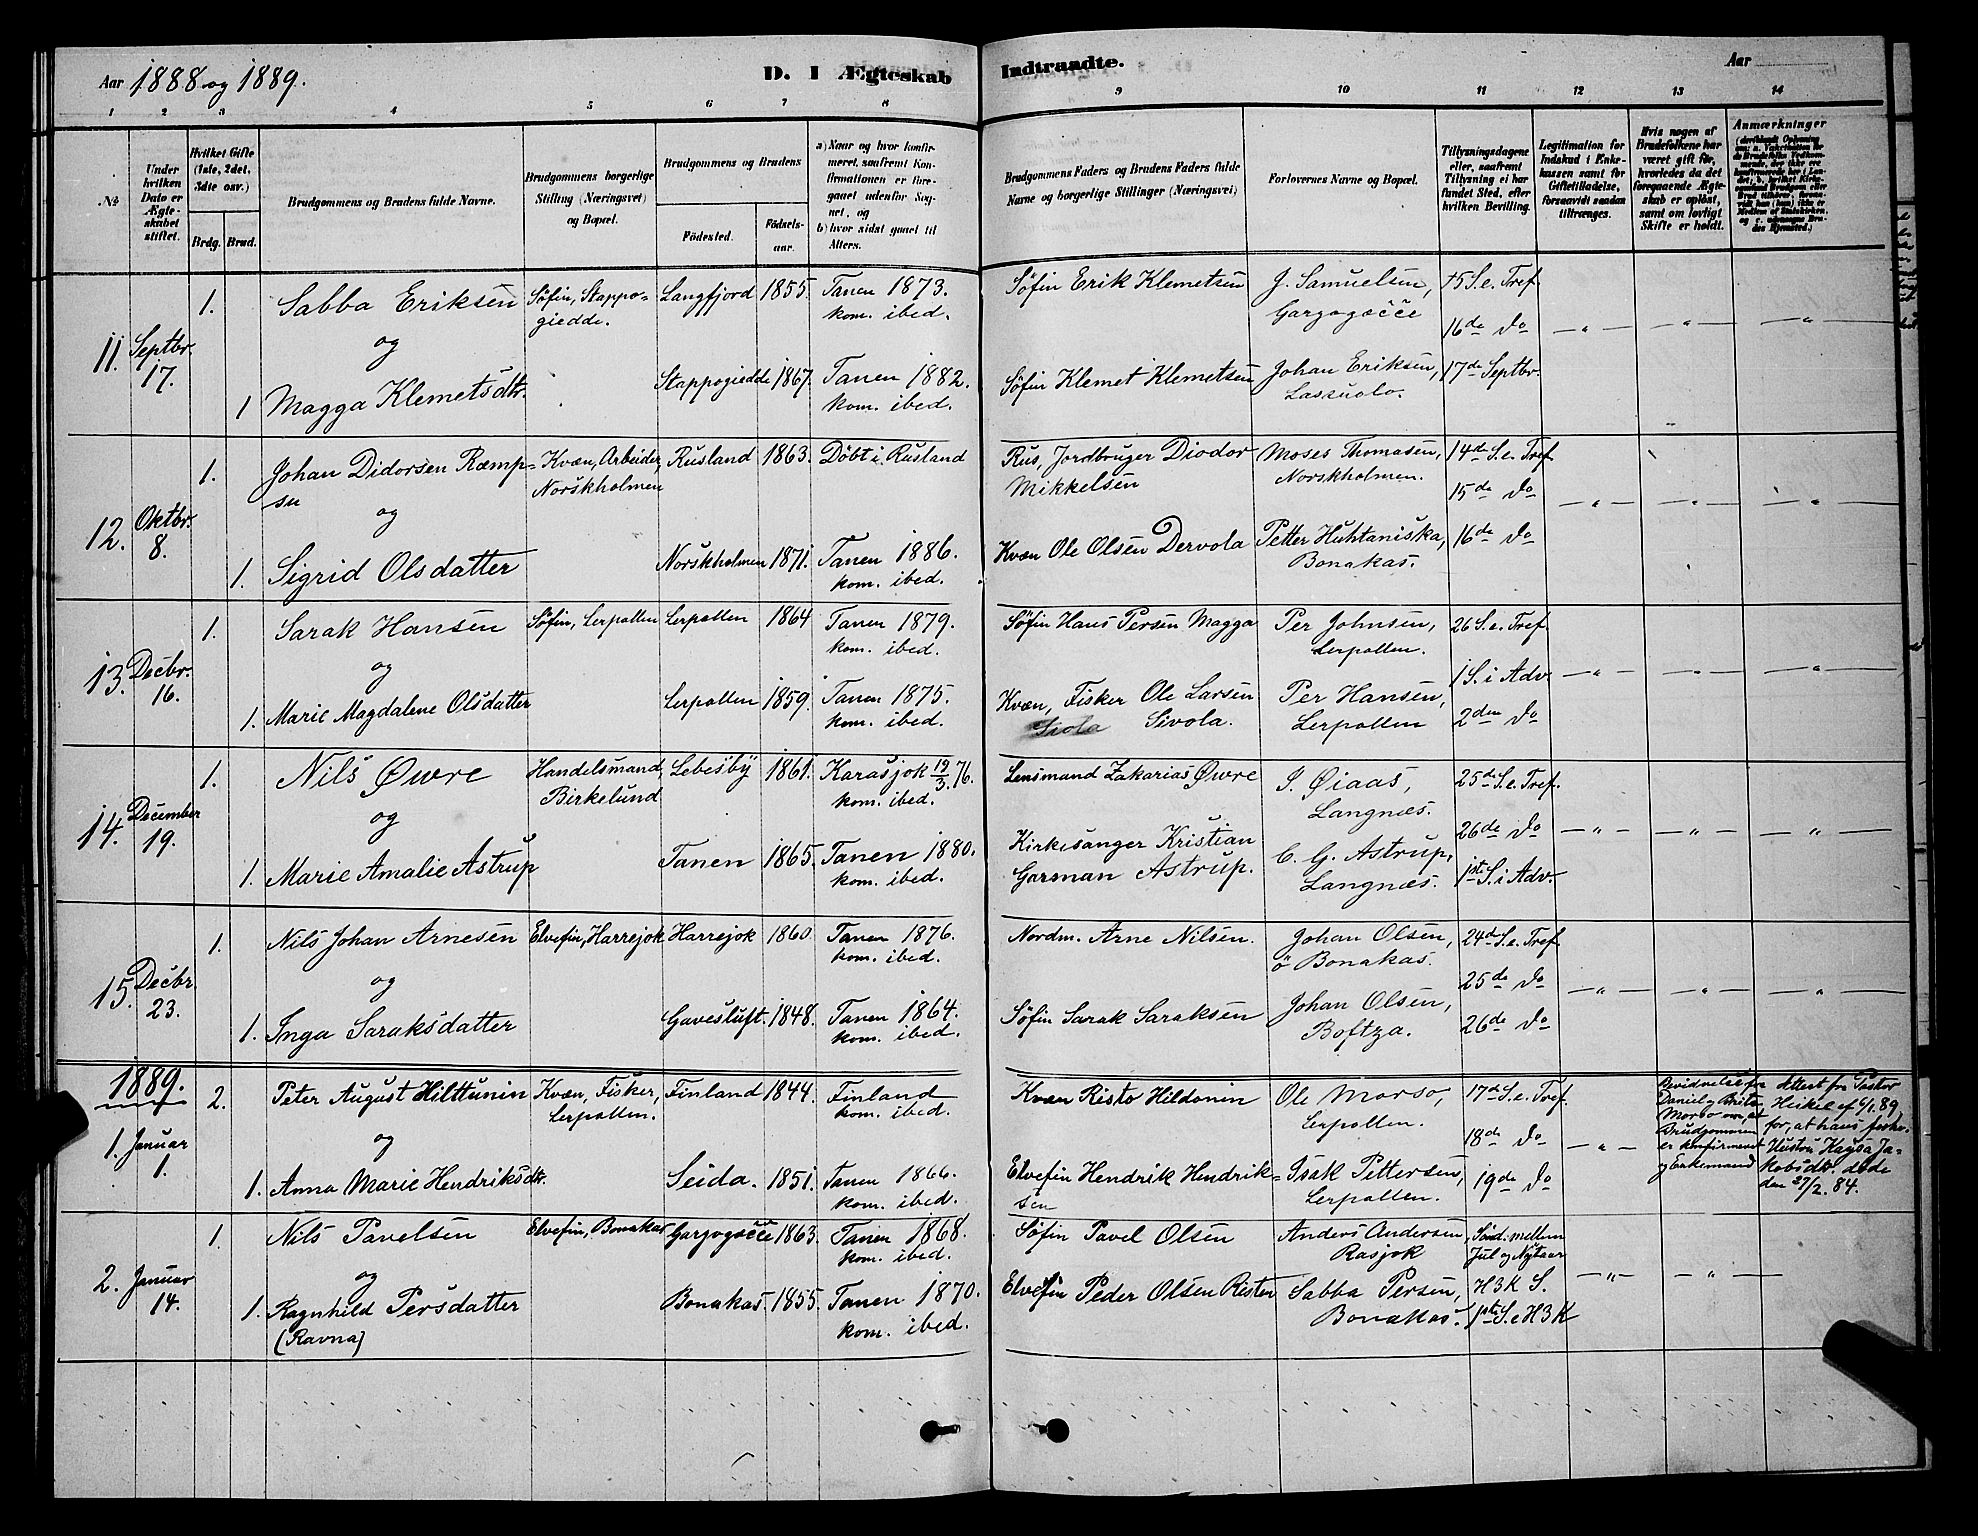 Aar 1888 og 1889.
D. I Ægteskab Indtraadte.
Aar
1 2 3 4 5 6 7 8 9 10 11 12 13 14
No.
Under hvilken Dato er Ægteskabet stiftet.
Hvilket Gifte (1ste, 2det, 3die osv.)
Brdg. Brud.
Brudgommens og Brudens fulde Navne.
Brudgommens borgerlige Stilling (Næringsvei) og Bopæl.
Brudgommens og Brudens
Fødested.
Fødselsaar.
a) Naar og hvor konfirmeret, saafremt Konfirmationen er foregaaet udenfor Sognet, og
b) hvor sidst gaaet til Alters.
Brudgommens Faders og Brudens Faders fulde Navne og borgerlige Stillinger (Næringsvei)
Forlovernes Navne og Bopæl.
Tillysningsdagene eller, saafremt Tillysning ei har fundet Sted, efter hvilken Bevilling.
Legitimation for Indskud i Enkekassen samt for Giftetilladelse, forsaavidt saadan tiltrænges.
Hvis nogen af Brudefolkene har været gift før, hvorledes da det foregaaende Ægteskab er opløst, samt om lovligt Skifte er holdt.
Anmærkninger
11. Septbr. 17.
1. Sabba Eriksen
Søfin, Stappogiedde.
Langfjord 1855. Tanen 1873. kom. ibed.
Søfin Erik Klemetsen
J. Samuelsen, Gargogočče
15 S. e. Tref.
16de do
og
1 Magga Klemetsdtr.
Stappogiedde 1867. Tanen 1882. kom. ibed.
Søfin Klemet Klemetsen
Johan Eriksen, Lassuolo.
17de Septbr.
12. Oktbr. 8.
1. Johan Didorsen Ræmpsu
Kvæn, Arbeider, Norskholmen
Rusland 1863. Döbt i Rusland
Rus, Jordbruger Diodor Mikkelsen
Moses Thomasen, Norskholmen.
14de S. e. Tref.
15de do
og
1. Sigrid Olsdatter
Norskholmen 1871. Tanen 1886. kom. ibed.
Kvæn Ole Olsen Dervola
Petter Huhtaniska, Bonakas.
16de do
13. Decbr. 16.
1. Sarak Hansen
Søfin, Lerpollen
Lerpollen 1864 Tanen 1879. kom. ibed.
Søfin Hans Persen Magga
Per Johnsen, Lerpollen.
26 S. e. Tref.
1 S. i Adv.
og
1. Marie Magdalene Olsdatter
Lerpollen 1859. Tanen 1875. kom. ibed.
Kvæn, Fisker Ole Larsen Sivola.
Per Hansen, Lerpollen
2den do
14. December 19.
1. Nils Øwre
Handelsmand, Birkelund
Lebesby 1861. Karasjok 19/3 76. kom. ibed.
Lensmand Zakarias Øwre
I. Øiaas, Langnæs.
25de S. e. Tref.
26de do
og
1. Marie Amalie Astrup
Tanen 1865. Tanen 1880. kom. ibed.
Kirkesanger Kristian Garman Astrup.
C. G. Astrup, Langnæs.
1ste S. i Adv.
15. Decbr. 23.
1. Nils Johan Arnesen
Elvefin, Harrejok
Harrejok 1860 Tanen 1876. kom. ibed.
Nordm. Arne Nilsen.
Johan Olsen, ö Bonakas.
24de S. e. Tref.
25de do
og
1. Inga Saraksdatter
Gavesluft. 1848. Tanen 1864. kom. ibed.
Søfin Sarak Saraksen
Johan Olsen, Boftza.
26de do
1889.
1. Januar 1.
2. Peter August Hilttunin
Kvæn, Fisker, Lerpollen.
Finland 1844. Finland kom. ibed.
Kvæn Risto Hildonin
Ole Morso, Lerpollen.
17de S. e. Tref.
18de do
Bevidnelse fra Daniel og Brita Morso om, at Brudgommen er konfirmeret og Enkemand
Attest fra Pastor Heikel af 6/1 89 for, at hans forhe. Hustru Kaysa Jakobsdtr. döde den 27/2. 84.
og
1. Anna Marie Hendriksdtr.
Seida. 1851. Tanen 1866. kom. ibed.
Elvefin Hendrik Hendriksen
Isak Pettersen, Lerpollen.
19de do
2. Januar 14.
1. Nils Pavelsen
Elvefin, Bonakas
Gargogočče 1863. Tanen 1868. kom. ibed.
Søfin Pavel Olsen
Anders Andersen, Rasjok
Sønd. mellem Jul og Nytaar
og
1. Ragnhild Persdatter (Ravna)
Bonakas. 1855. Tanen 1870. kom. ibed.
Elvefin Peder Olsen Risten
Sabba Persen, Bonakas.
H3K S.
1ste S. e H3K